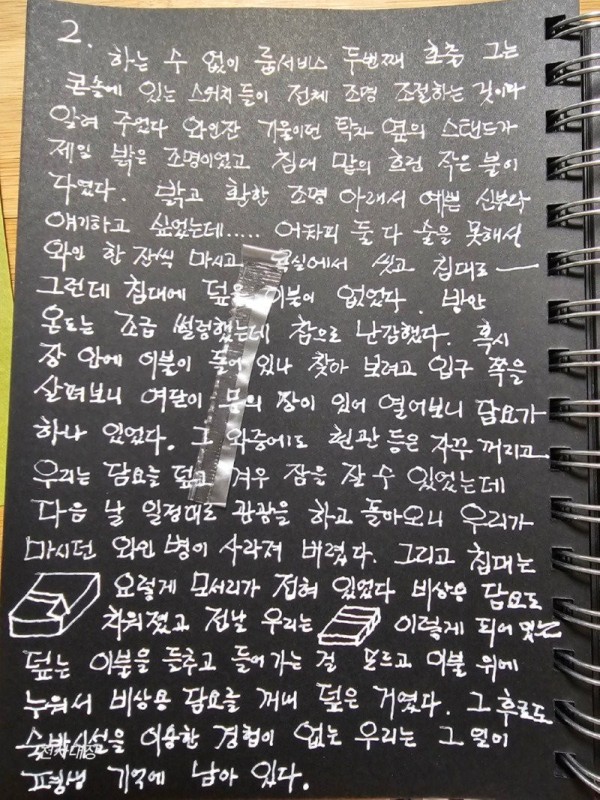 2.
하는 수 없이 룸서비스 두번째 호출 그는
콘솔에 있는 스위치들이 전체 조명 조절하는 것이다
알려 주었다 와인잔 기울이던 탁자 옆의 스탠드가
제일 밝은 조명이었고 침대 맡의 흐린 작은 불이
다였다. 밝고 환한 조명 아래서 예쁜 신부와
얘기하고 싶었는데..... 어차피 둘 다 술을 못해서
와인 한 잔씩 마시고 씻고 침대로 —
그런데 침대에 덮을 이불이 없었다. 방안
온도는 조금 썰렁했는데 참으로 난감했다. 혹시
장 안에 이불이 들어 있나 찾아 보려고 입구 쪽을
살펴보니 여닫이 문의 장이 있어 열어보니 담요가
하나 있었다. 그 와중에도 현관 등은 자꾸 꺼리고
우리는 담요를 덮고 겨우 잠을 잘 수 있었는데
다음 날 일정대로 관광을 하고 돌아오니 우리가
마시던 와인 병이 사라져 버렸다. 그리고 침대는
요렇게 모서리가 접혀 있었다 비상용 담요도
치워졌고 전날 우리는 이렇게 되어 있는
덮는 이불을 들추고 들어가는 걸 모르고 이불 위에
누워서 비상용 담요를 꺼내 덮은 거였다. 그 후로도
숙박시설을 이용한 경험이 없는 우리는 그 일이
평생 기억에 남아 있다.